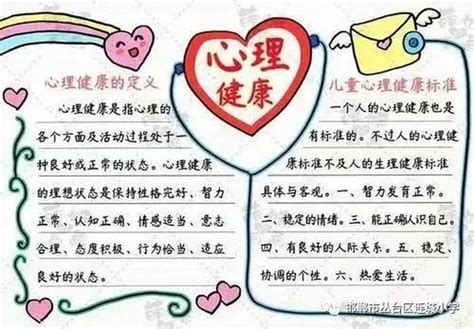 心理
健康
心理健康的定义
心理健康是指心理的
各个方面及活动过程处于一
种良好或正常的状态。心理健康
的理想状态是保持性格完好、智力
正常、认知正确、情感适当、意志
合理、态度积极、行为恰当、适应
良好的状态。
儿童心理健康标准
一个人的心理健康也是
有标准的。不过人的心理健
康标准不及人的生理健康标准
具体与客观。一、智力发育正常。
二、稳定的情绪。三、能正确认识自己。
四、有良好的人际关系。五、稳定、
协调的个性。六、热爱生活。
邯郸市丛台区连城小学